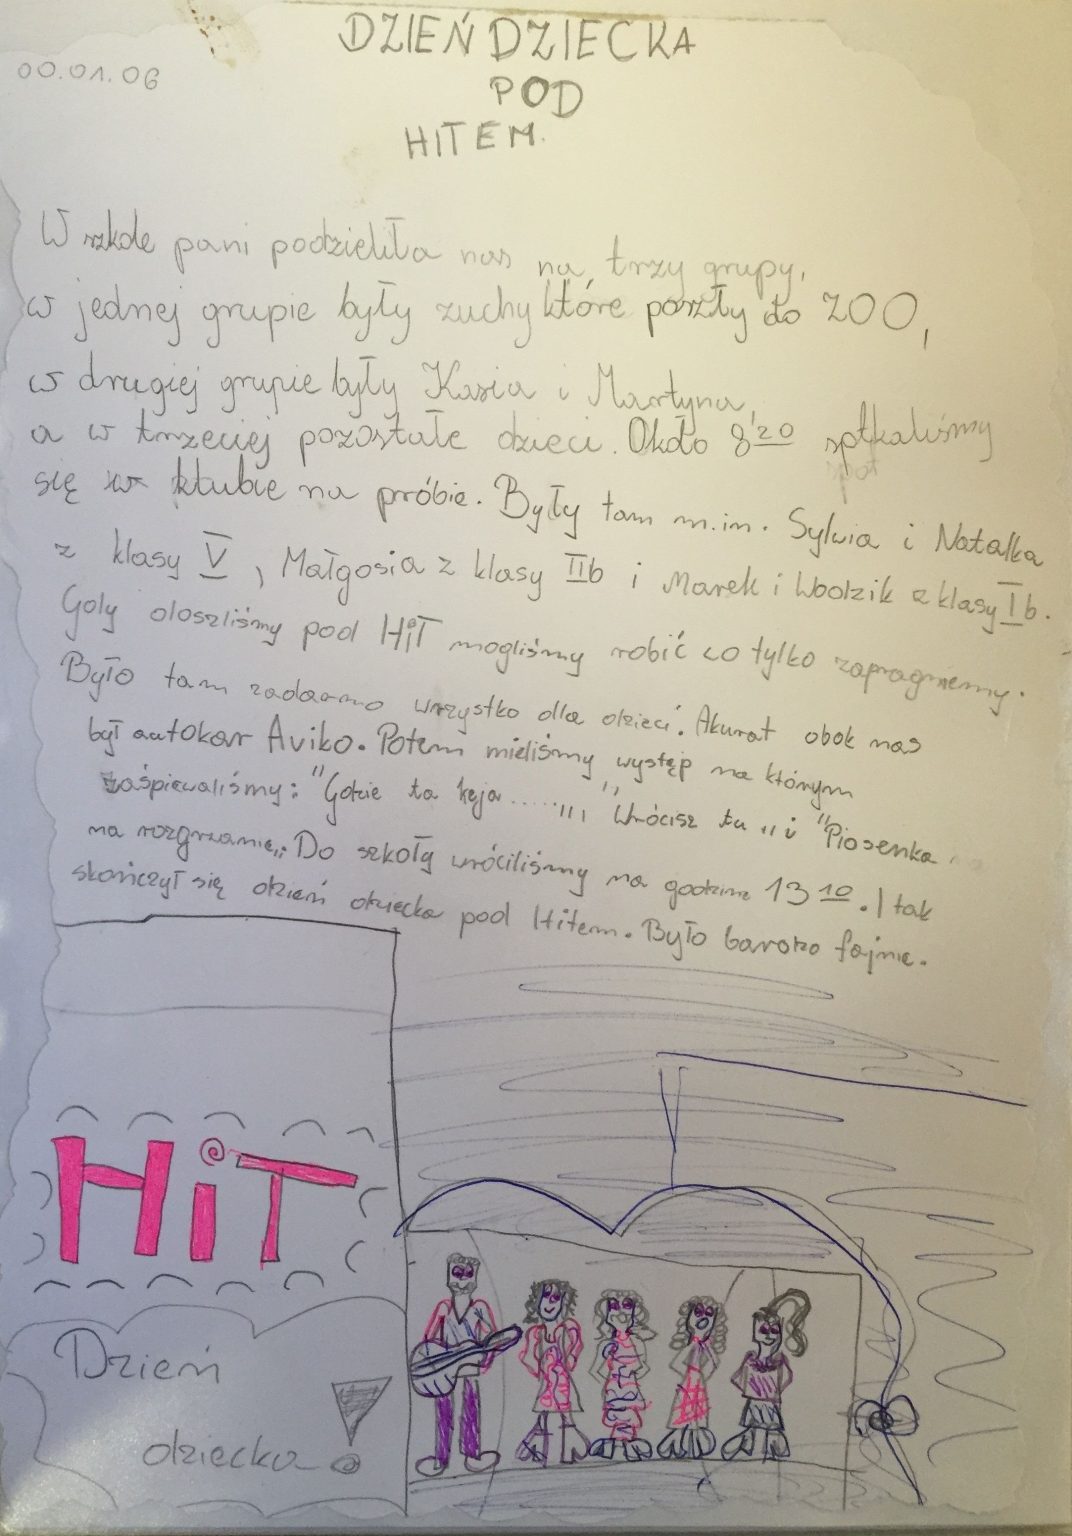 DZIEŃ DZIECKA
00.01.06
POD
HITEM.
W szkole pani podzieliła nas na trzy grupy,
w jednej grupie były zuchy które poszły do ZOO,
w drugiej grupie były Kasia i Martyna,
a w trzeciej pozostałe dzieci. Około 8²⁰ sptkaliśmy
się w klubie na próbie. Były tam m.in. Sylwia i Natalka
z klasy V, Małgosia z klasy IIb i Marek i Wodzik z klasy Ib.
Gdy doszliśmy pod HiT mogliśmy robić co tylko zapragniemy.
Było tam zadarmo wszystko dla dzieci. Akurat obok nas
był autokar Aviko. Potem mieliśmy występ na którym
zaśpiewaliśmy: "Gdzie ta keja......,,, "Wrócisz tu,, i "Piosenka
na rozgrzanie,,. Do szkoły wróciliśmy na godzine 13¹⁰. I tak
skończył się dzień dziecka pod Hitem. Było bardzo fajnie.
HiT
Dzień
dziecka